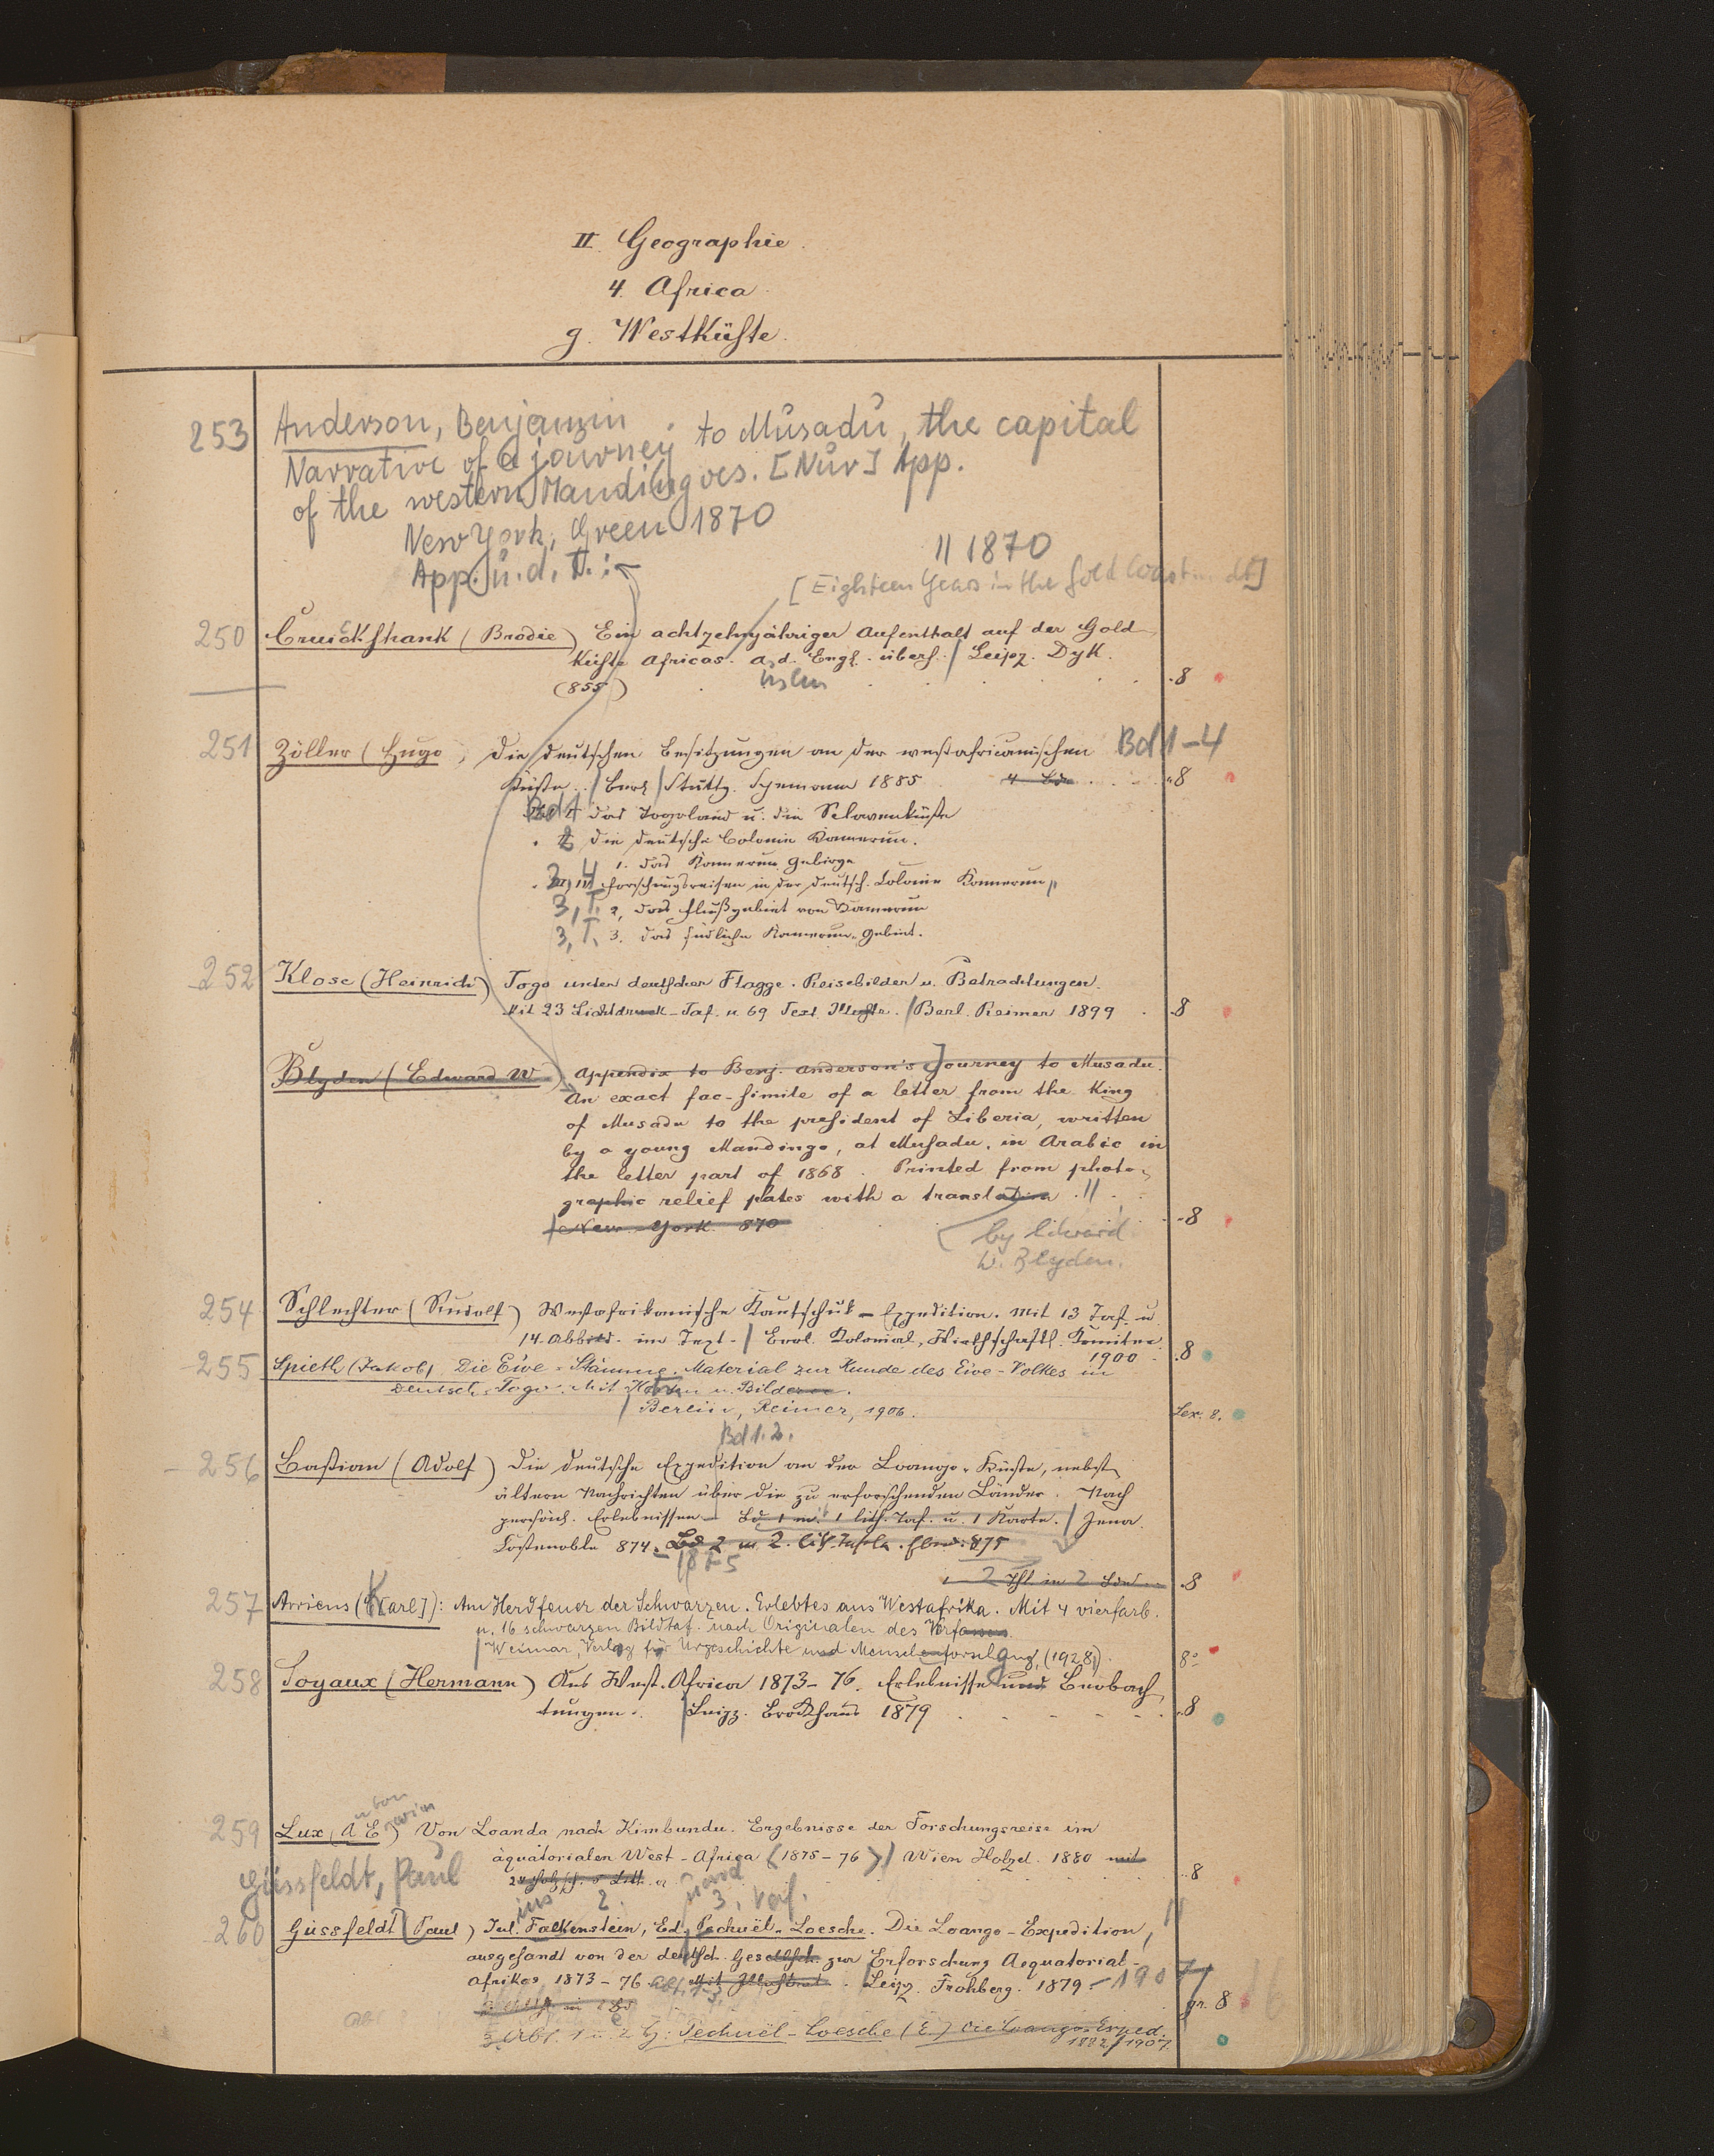 II. Geographie.
4. Africa
g. Westküste.
253 Anderson, Benjamin
Narrative of a journey to Musadu, the capital
of the western Mandingoes. [Nur] App.
New York, Green 1870
App. u. d. T.:
|| 1870
[Eighteen Years in the Gold Coast dt]
250 Cruickshank (Brodie) Ein achtzehnjähriger Aufenthalt auf der Gold-
küste Africas. a. d. Engl. übers. / Leipz. Dyk.
(855) . 8
251 Zöller (Hugo) Die deutschen Besitzungen an der westafricanischen Bd 1-4
Küste. / Berl / Stuttg. Spemann 1885 4 Bde . 8
Bd 1 Das Togoland u. die Sclavenküste
2 Die deutsche Colonie Kamerun.
1. Das Kamerun Gebirge
2, 4 Forschungsreisen in der deutsch. Colonie Kamerun
3, T. 2, Das Flußgebiet von Kamerun
3, T. 3. Das südliche Kamerun-Gebiet.
252 Klose (Heinrich) Togo unter deutscher Flagge. Reisebilder u. Betrachtungen.
Mit 23 Lichtdruck-Taf. u. 69 Text Illustr. / Berl. Reimer 1899 . 8
Blyden (Edward W.) Appendix to Benj. Anderson's Journey to Musadu.
An exact fac-simile of a letter from the King
of Musadu to the president of Liberia, written
by a young Mandingo, at Musadu, in Arabic in
the letter part of 1868. Printed from photo-
graphic relief plates with a translation. ||
New-York 870 . 8
by Edward
W. Blyden.
254 Schlechter (Rudolf) Westafrikanische Kautschuk-Expedition. Mit 13 Taf. u.
14 Abbild. im Text. / Berl. Kolonial-Wirthschaftl. Komitee
1900 . 8
255 Spieth (Jakob) Die Ewe-Stämme. Material zur Kunde des Ewe-Volkes in
Deutsch-Togo. Mit Karten u. Bildern.
/ Berlin, Reimer, 1906. Lex. 8.
Bd 1.2.
256 Bastian (Adolf) Die deutsche Expedition an der Loango-Küste, nebst
ältern Nachrichten über die zu erforschenden Länder. Nach
persönl. Erlebnissen. Bd 1 m. 1 lith. Taf. u. 1 Karte. / Jena.
Costenoble 874. Bd 2 m. 2 lith. Tafeln. Ebend. 875
-1875
2 Thl. in 2 Bdn . 8
257 Arriens (K[arl]): Am Herdfeuer der Schwarzen. Erlebtes aus Westafrika. Mit 4 vierfarb.
u. 16 schwarzen Bildtaf. nach Originalen des Verfassers.
/ Weimar, Verlag für Urgeschichte und Menschenforschung, (1928). 8°
258 Soyaux (Hermann) Aus West-Africa 1873-76. Erlebnisse und Beobach-
tungen. / Leipz. Brockhaus 1879 . 8
259 Lux (A E) Von Loanda nach Kimbundu. Ergebnisse der Forschungsreise im
äquatorialen West-Africa (1875-76) / Wien Hölzel. 1880 mit
. 8
Güssfeldt, Paul
260 Güssfeldt (Paul) Jul. Falkenstein, Ed. Pechuël-Loesche. Die Loango-Expedition,
ausgesandt von der deutsch. Gesellsch. zur Erforschung Aequatorial-
Afrikas, 1873-76 Abt. 1-3 Mit Illustrat. Leipz. Frohberg. 1879 - 1907
gr. 8
3 Abt. 1 u. 2 H: Pechuël-Loesche (E.) Die Loango-Exped.
1882/1907.